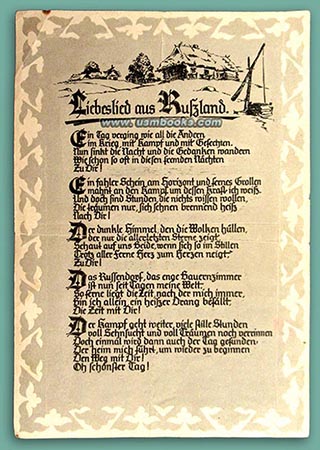 Liebeslied aus Rußland.
www.usmbooks.com
Ein Tag verging wie all die Andern
Im Krieg mit Kampf und mit Gefechten.
Nun sinkt die Nacht und die Gedanken wandern
Wie schon so oft in diesen fremden Nächten
Zu Dir!
Ein fahler Schein am Horizont und fernes Grollen
mahnt an den Kampf, um dessen Kraft ich weiß.
Und doch sind Stunden die nichts wissen wollen,
Die träumen nur, sich sehnen brennend heiß
Nach Dir!
Der dunkle Himmel, den die Wolken hüllen,
der nur die allerletzten Sterne zeigt,
Schaut auf uns Beide, wenn sich so im Stillen
Trotz aller Ferne Herz zum Herzen neigt
Zu Dir!
Das Russendorf, das enge Bauernzimmer
ist nun seit Tagen meine Welt.
So ferne liegt die Zeit nach der mich immer,
Bin ich allein, ein heißer Drang befällt:
Die Zeit mit Dir!
Der Kampf geht weiter, viele stille Stunden
voll Sehnsucht und voll Träumen noch verrinnen
Doch einmal wird dann auch der Tag gefunden
Der heim mich führt, um wieder zu beginnen
Den Weg mit Dir!
Oh schönster Tag!